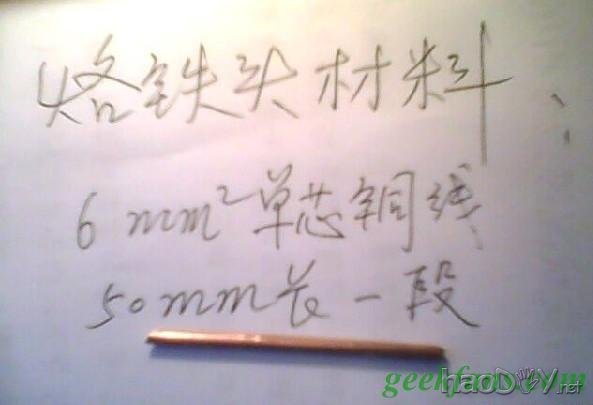 烙铁头材料：
6mm²单芯铜线
50mm长一段